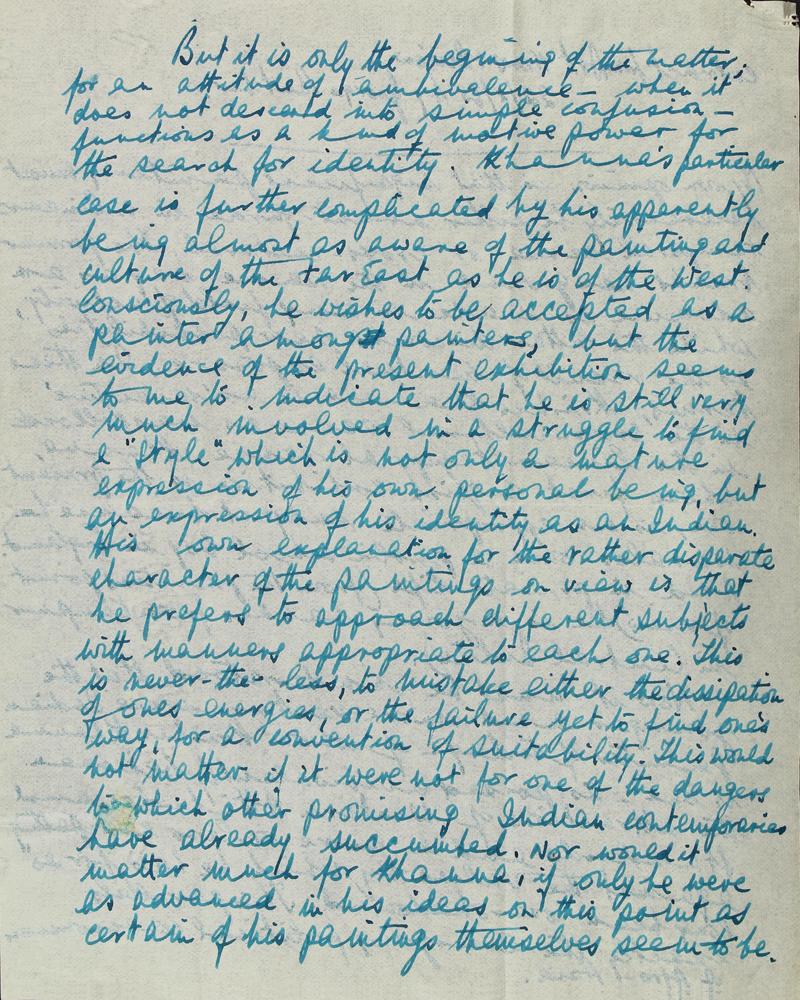 But it is only the begining of the matter;
for an attitude of ambivalence – when it
does not descend into simple confusion –
functions as a kind of motive power for
the search for identity. Khanna's particular
case is further complicated by his apparently
being almost as aware of the painting and
culture of the Far East as he is of the West.
Consciously, he wishes to be accepted as a
painter amongst painters, but the
evidence of the present exhibition seems
to me to indicate that he is still very
much involved in a struggle to find
a "Style" which is not only a mature
expression of his own personal being, but
an expression of his identity as an Indian.
His own explanation for the rather disparate
character of the paintings on view is that
he prefers to approach different subjects
with manners appropriate to each one. This
is never-the-less, to mistake either the dissipation
of ones energies, or the failure yet to find one's
way, for a convention of suitability. This would
not matter if it were not for one of the dangers
to which other promising Indian contemporaries
have already succumbed. Nor would it
matter much for Khanna, if only he were
as advanced in his ideas on this point as
certain of his paintings themselves seem to be.